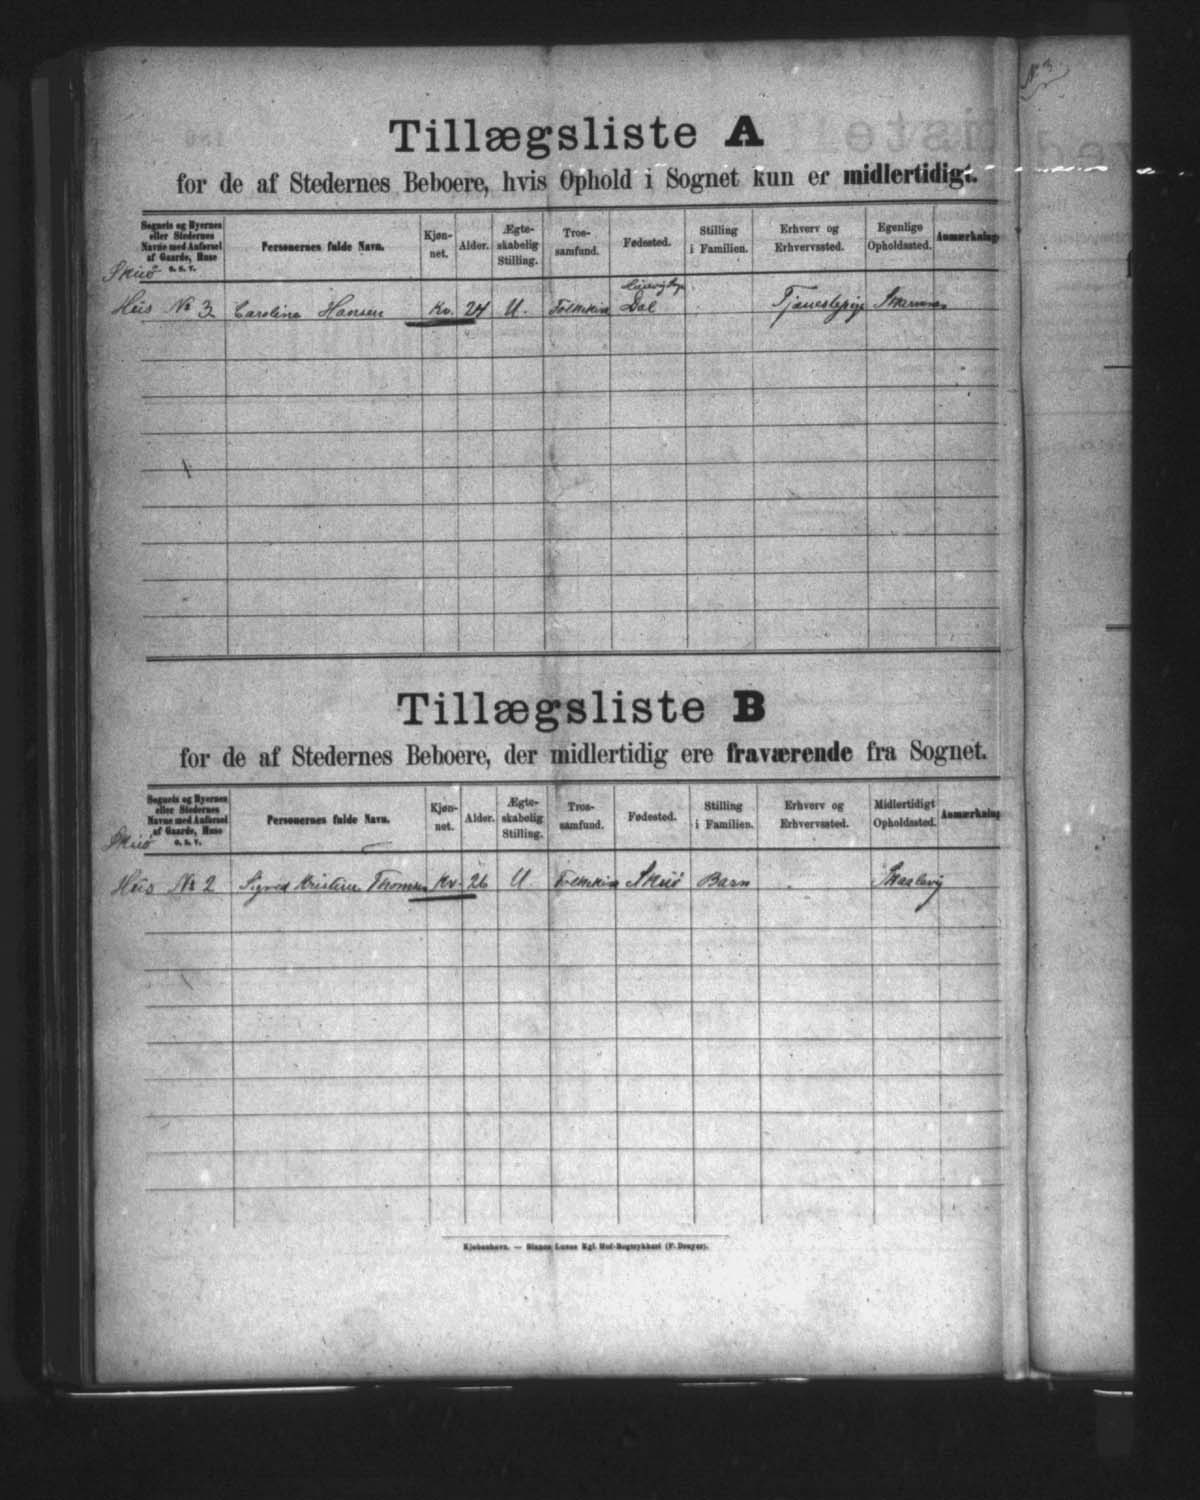 Tillægsliste A
for de af Stedernes Beboere, hvis Ophold i Sognet kun er midlertidigt.
Sognets og Byernes eller Stedernes Navne med Anførsel af Gaarde, Huse o. s. v. Personernes fulde Navn. Kjøn- net. Alder. Ægte- skabelig Stilling. Tros- samfund. Fødested. Stilling i Familien. Erhverv og Erhvervssted. Egenlige Opholdssted. Anmærkning
Skuø
Hus № 3 Caroline Hansen Kv. 24 U. Folkekirk Dal Tjenestepige
Tillægsliste B
for de af Stedernes Beboere, der midlertidig ere fraværende fra Sognet.
Sognets og Byernes eller Stedernes Navne med Anførsel af Gaarde, Huse o. s. v. Personernes fulde Navn. Kjøn- net. Alder. Ægte- skabelig Stilling. Tros- samfund. Fødested. Stilling i Familien. Erhverv og Erhvervssted. Midlertidigt Opholdssted. Anmærkning
Skuø
Hus № 2 Sigrid Kristine Thomsen Kv. 26 U. Folkekirk Skuø Barn Skaalevig
Kjøbenhavn. — Bianco Lunos Kgl. Hof-Bogtrykkeri (F. Dreyer).